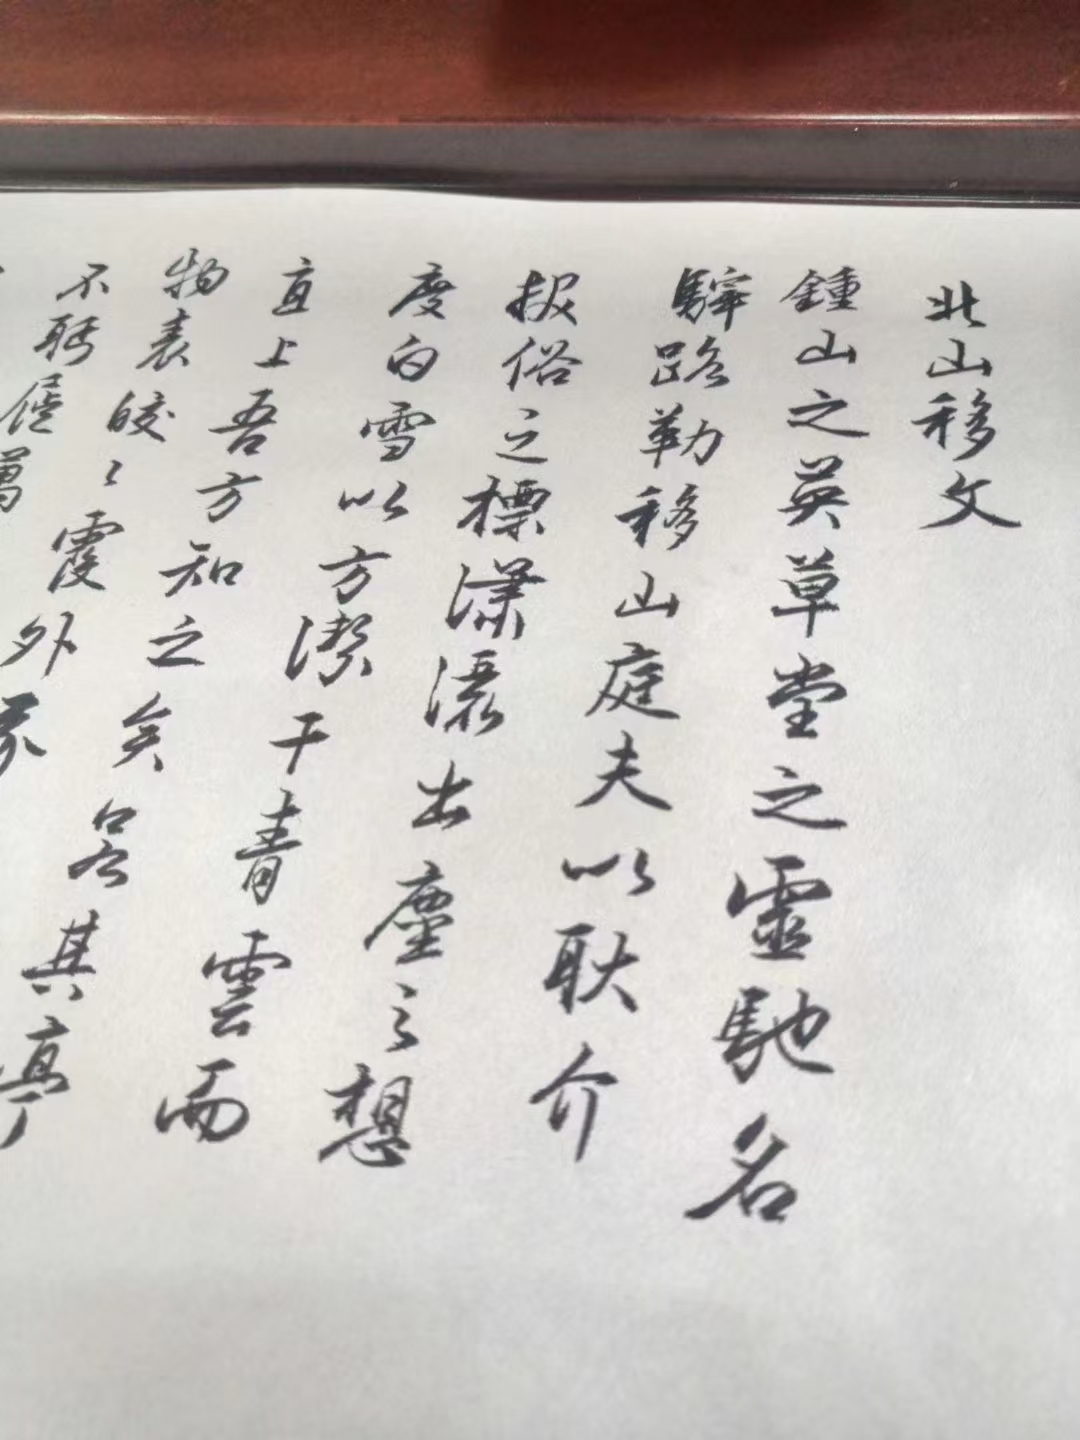 北山移文
鍾山之英草堂之靈馳名
驛路勒移山庭夫以耿介
拔俗之標瀟灑出塵之想
度白雪以方潔干青雲而
直上吾方知之矣若其亭
物表皎〻霞外芥
不眄屣萬